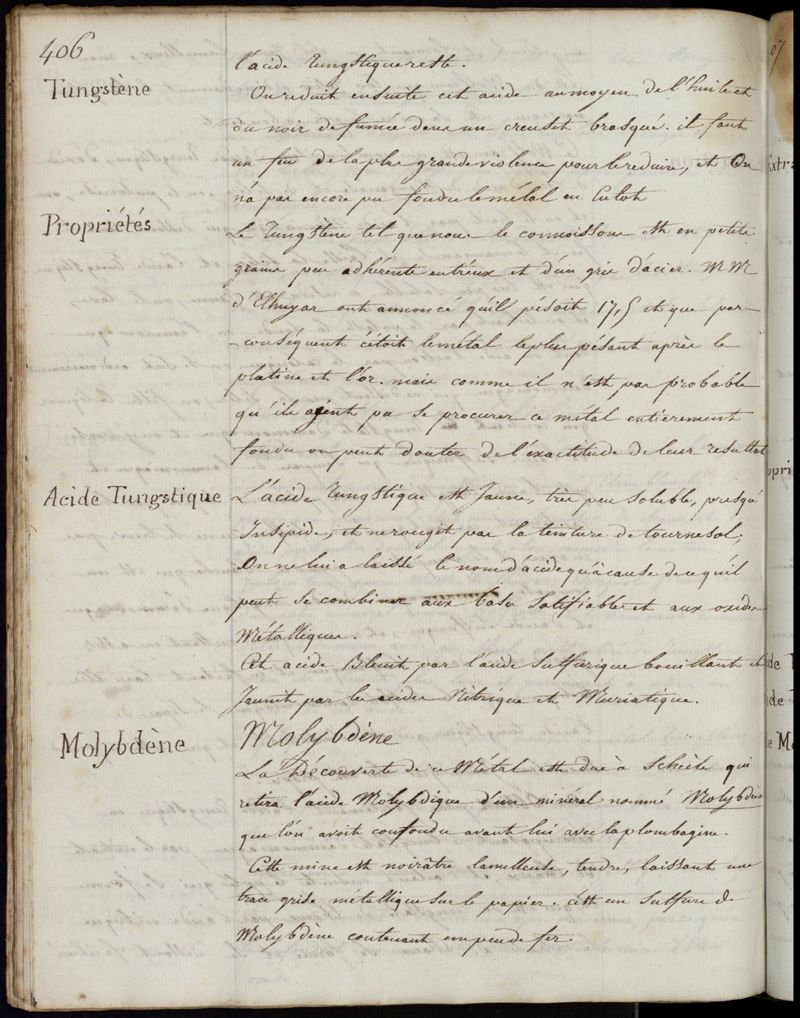 406
l'acide Tungstique reste.
Tungstène
On reduit ensuite cet acide au moyen de l'huile et
du noir de fumée dans un creuset brasqué. il faut
un feu de la plus grande violence pour le reduire, et On
n'a pas encore pu fondre le métal en Culot
Propriétés
Le Tungstène tel que nous le connoissons est en petits
grains peu adhérents entr'eux et d'un gris d'acier. MM
d'Elhuyar ont annoncé qu'il pésoit 17,5 et que par-
-conséquent c'étoit le métal le plus pésant après le
platine et l'or. mais comme il n'est pas probable
qu'ils ayent pu se procurer ce métal entierement
fondu on peut douter de l'exactitude de leur resultat
Acide Tungstique
L'acide Tungstique est Jaune, très peu soluble, presqu'
Insipide, et ne rougit pas la teinture de tournesol;
On ne lui a laissé le nom d'acide qu'à cause de ce qu'il
peut se combiner aux bases salifiables et aux oxides
Métalliques.
Cet acide Bleuit par l'acide sulfurique bouillant et
Jaunit par les acides Nitrique et Muriatique.
Molybdène
Molybdène
La Découverte de ce Métal est due à Schèele qui
retira l'acide Molybdique d'un minéral nommé Molybdène
que l'on avoit confondu avant lui avec la plombagine.
Cette mine est noirâtre lamelleuse, tendre, laissant une
trace grise métallique sur le papier. c'est un Sulfure de
Molybdène contenant un peu de fer